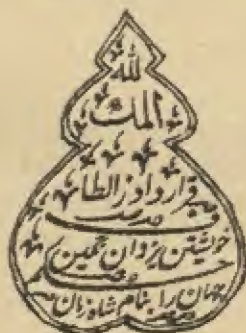 لله
الملك
قرار داد ز الطا
خویشتن یزدان نگین
جهان را بنام شاه زمان